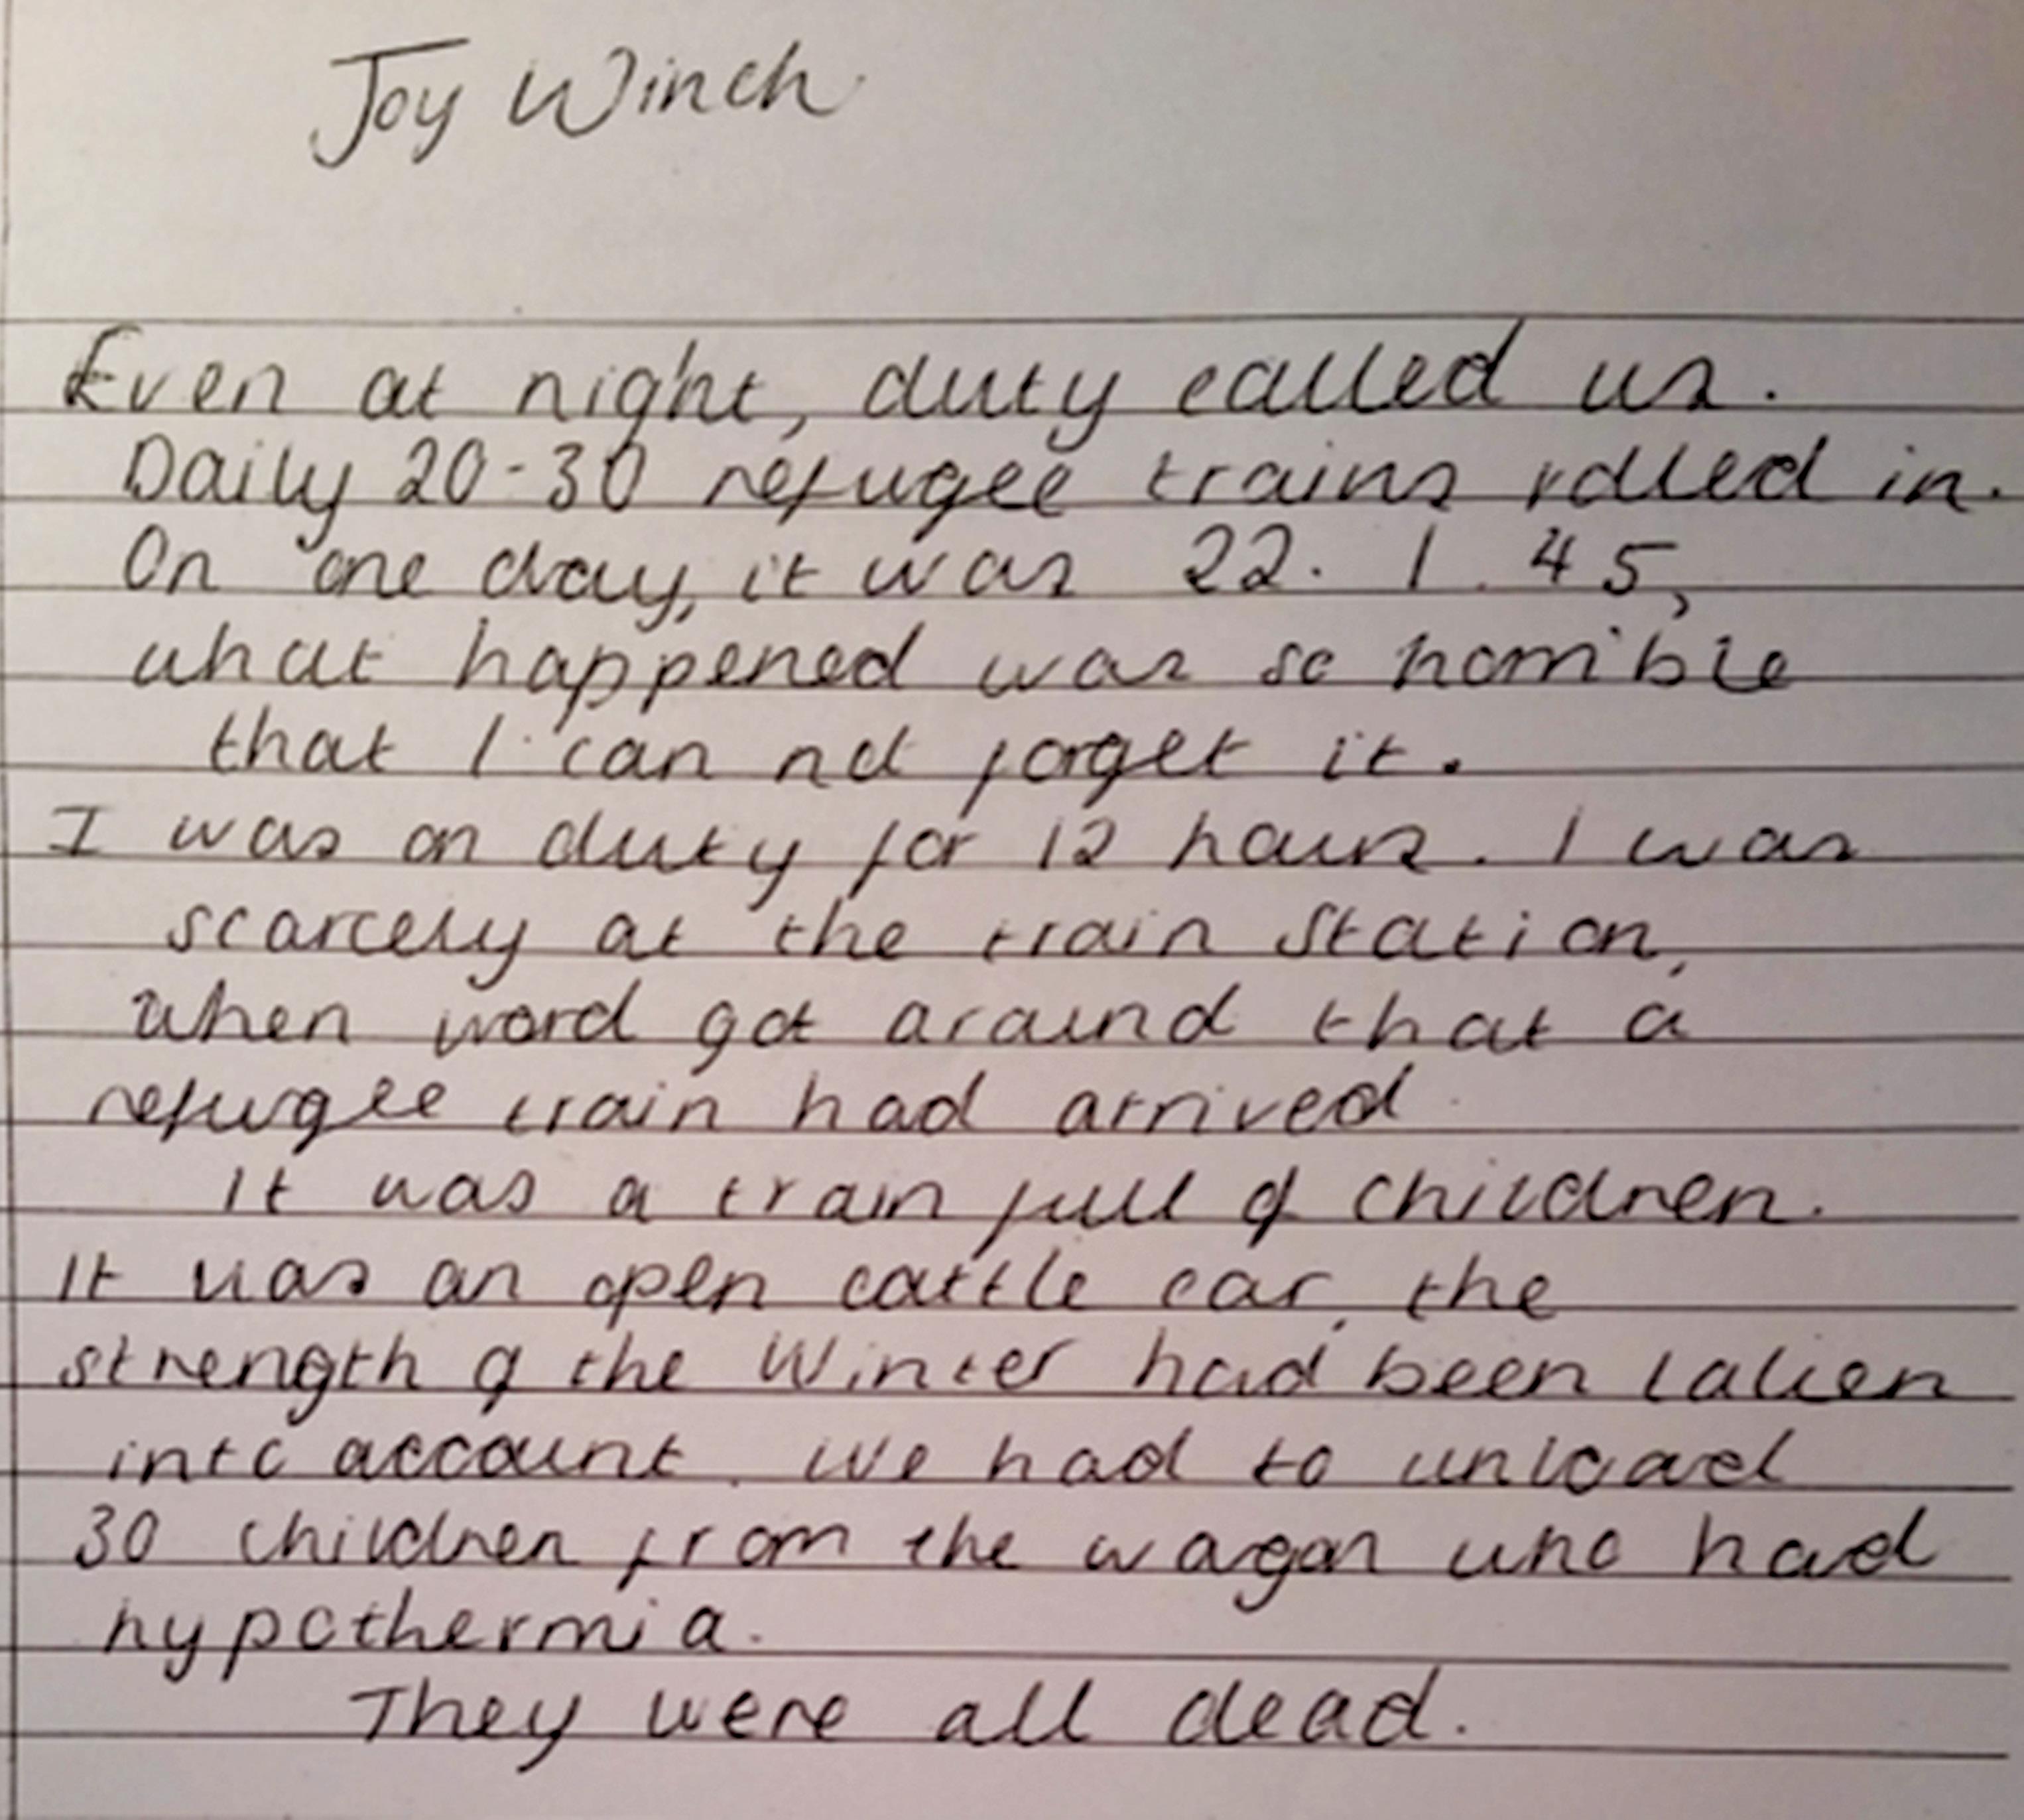 Joy Winch
Even at night, duty called us.
Daily 20-30 refugee trains rolled in.
On one day, it was 22. 1. 45,
what happened was so horrible
that I can not forget it.
I was on duty for 12 hours. I was
scarcely at the train station,
when word got around that a
refugee train had arrived.
It was a train full of children.
It was an open cattle car, the
strength of the Winter had been taken
into account. We had to unload
30 children from the wagon who had
hypothermia.
They were all dead.